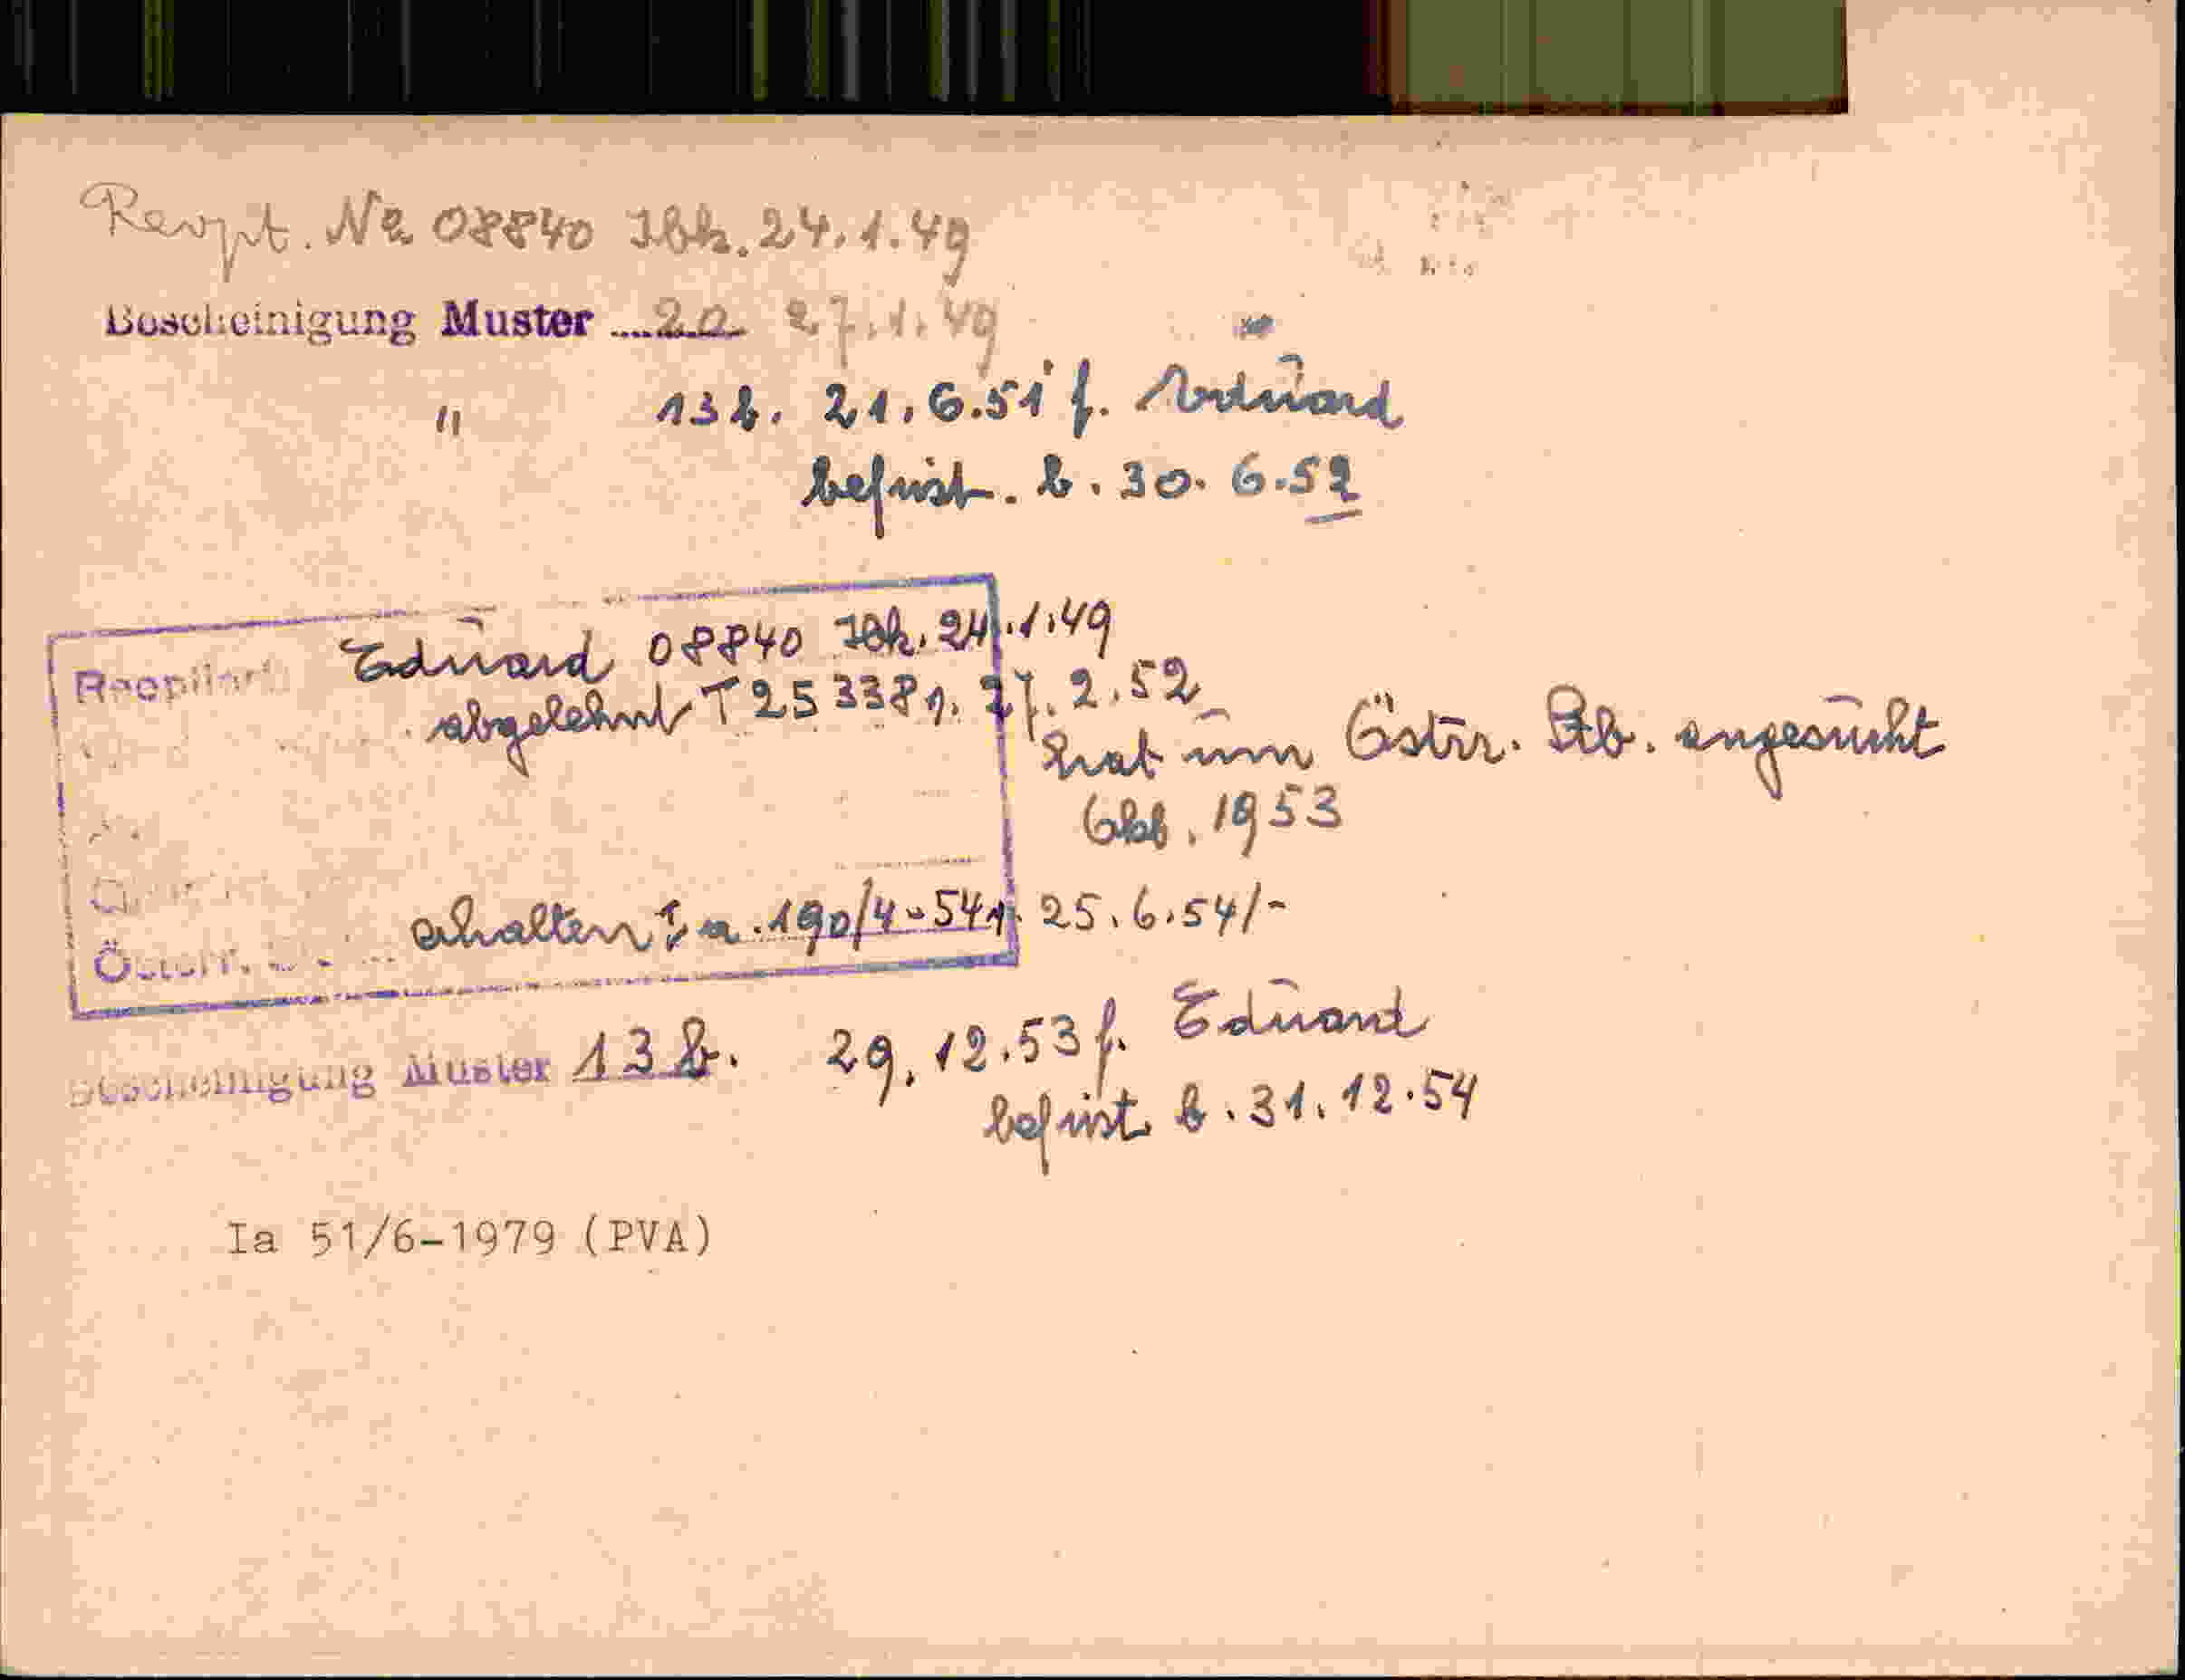 Reopt. No 08840 Ibk. 24.1.49
Bescheinigung Muster 20 27.1.49
" 13 b. 21.6.51 f. Eduard
befrist. b. 30.6.52
Eduard 08840 Ibk. 24.1.49
abgelehnt T 253338 27.2.52
hat um Östr. Stb. angesucht
Okt. 1953
erhalten I a 190/4-54 25.6.54/-
Bescheinigung Muster 13 b. 29.12.53 f. Eduard
befrist. b. 31.12.54
Ia 51/6-1979 (PVA)